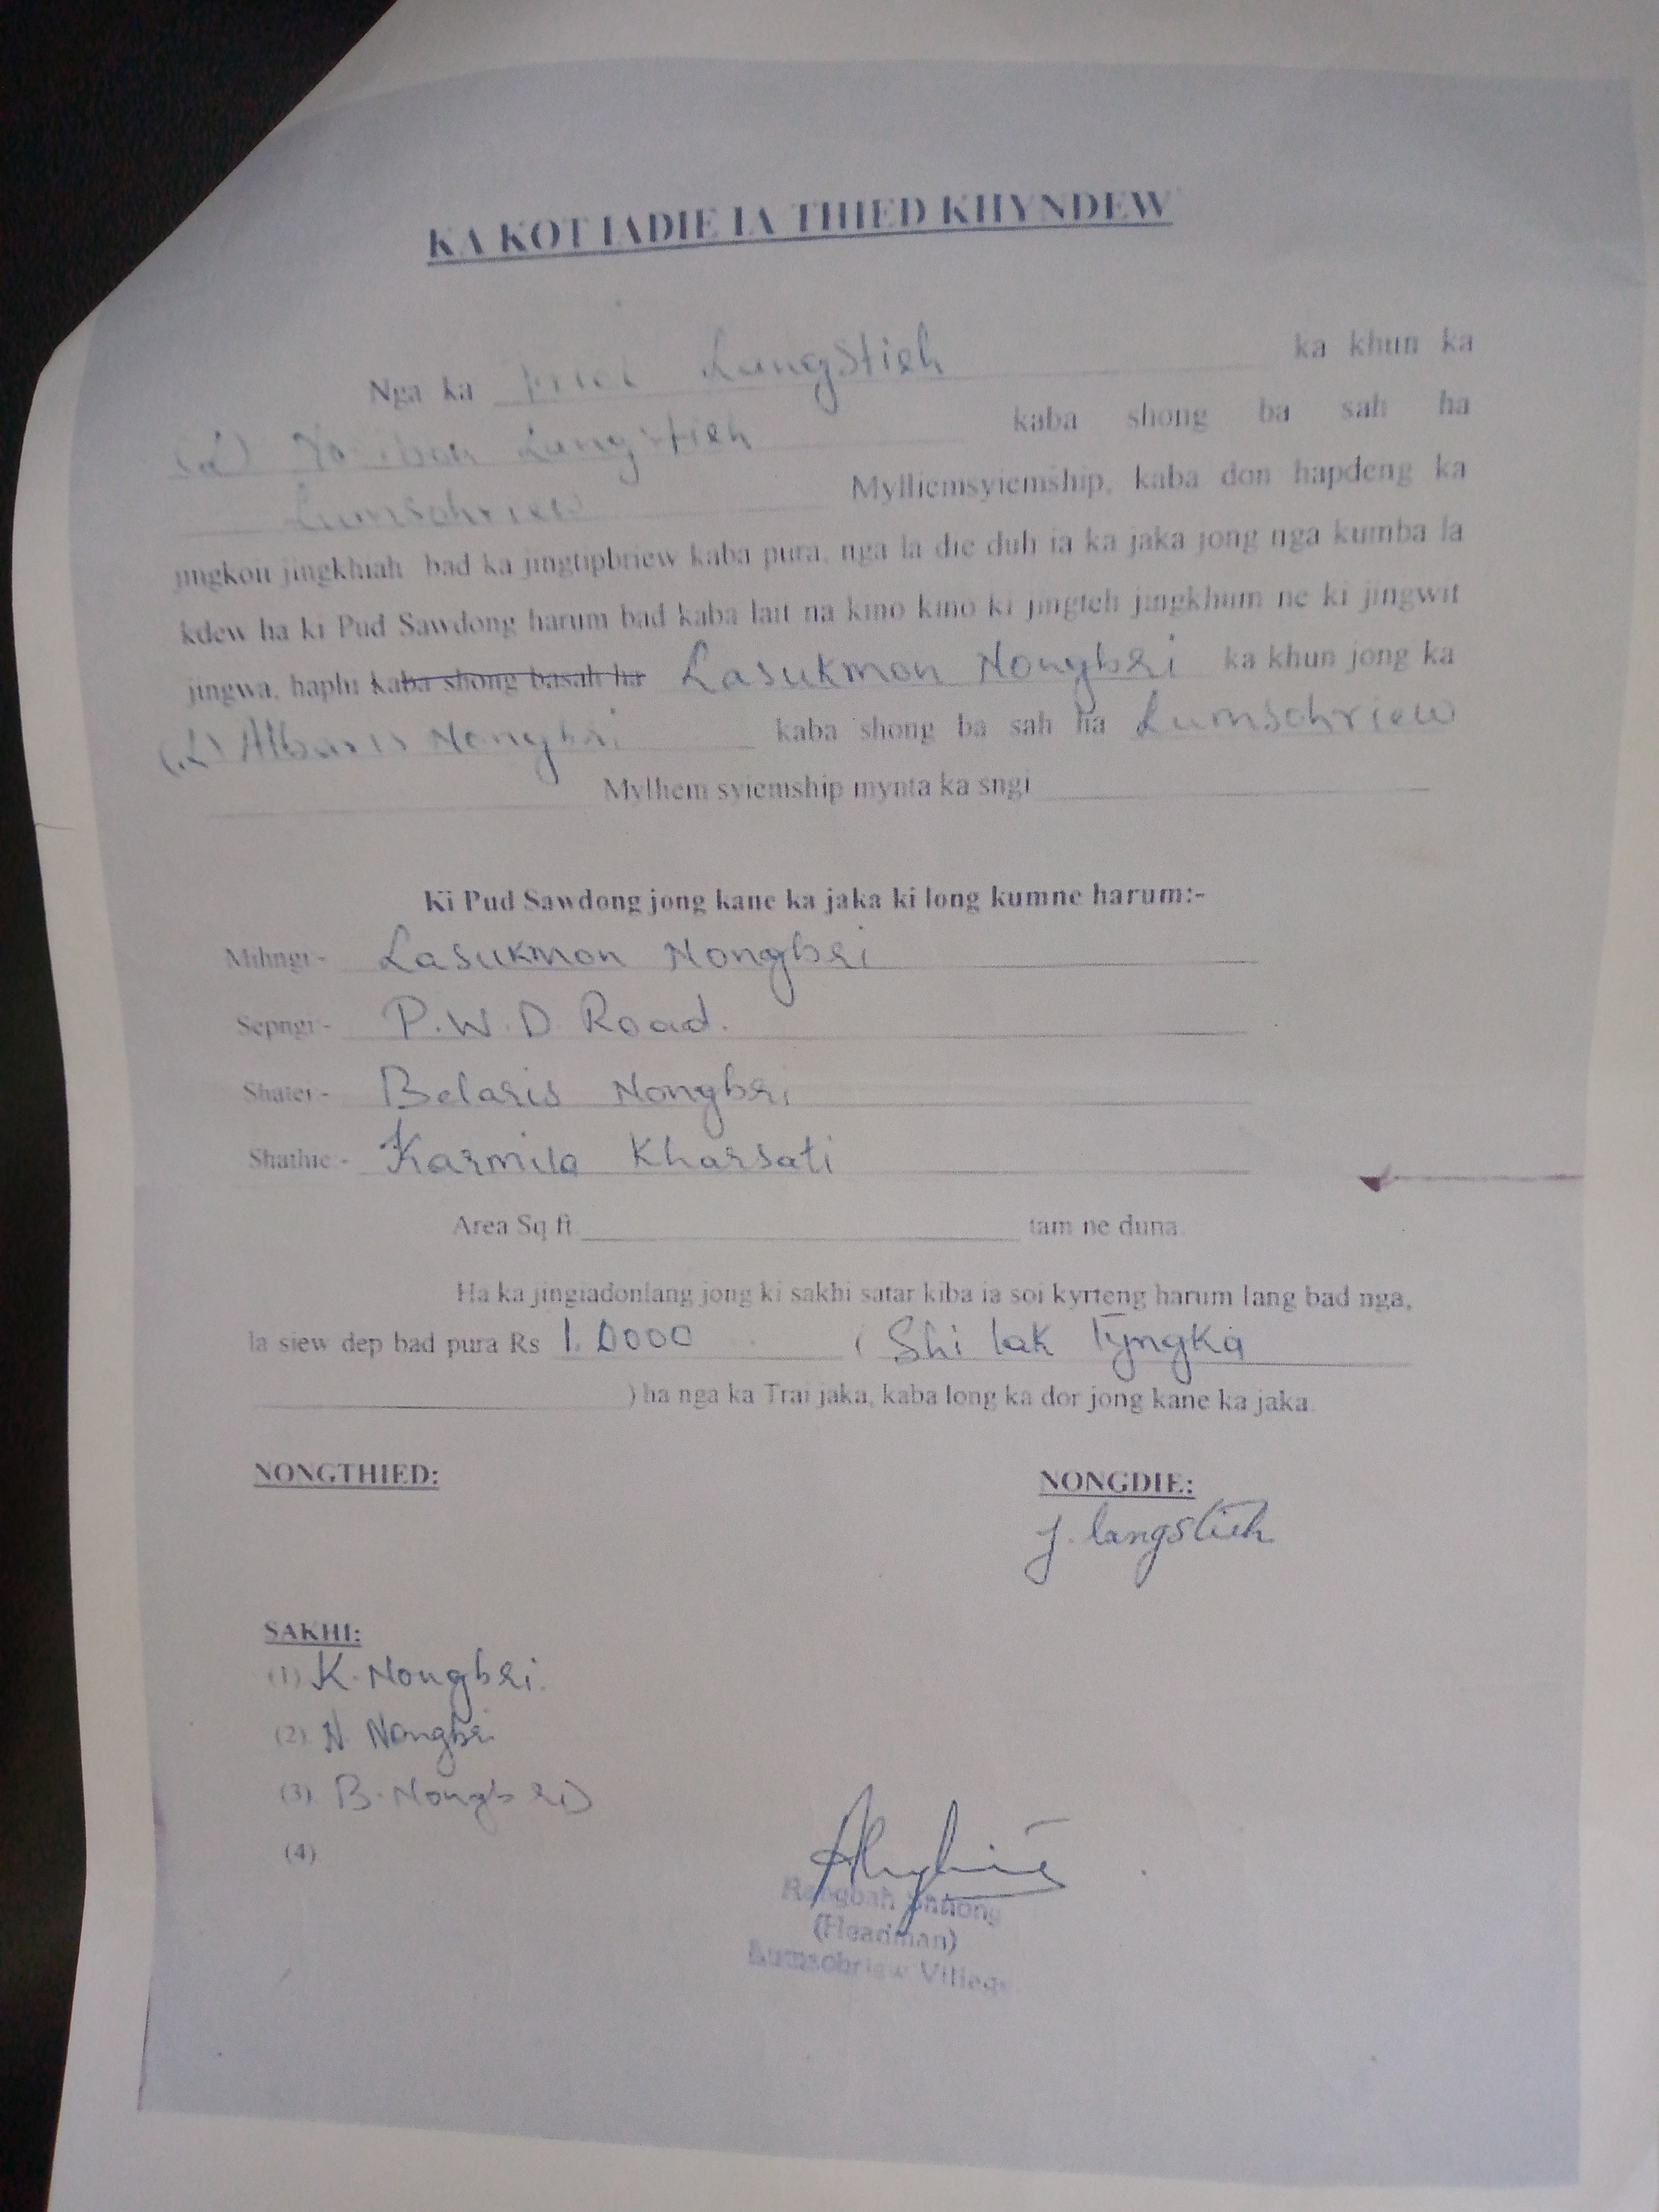 KA KOT IADIE IA THIED KHYNDEW
Nga ka Langstieh ka khun ka
(L) Langstieh kaba shong ba sah ha
Lumsohriew Mylliemsyiemship, kaba don hapdeng ka
jingkoit jingkhiah bad ka jingtipbriew kaba pura, nga la die duh ia ka jaka jong nga kumba la
kdew ha ki Pud Sawdong harum bad kaba lait na kino kino ki jingteh jingkhum ne ki jingwit
jingwa, haplu kaba shong basah ha Lasukmon Nongbri ka khun jong ka
(L) Albaris Nongbri kaba shong ba sah ha Lumsohriew
Mylliem syiemship mynta ka sngi
Ki Pud Sawdong jong kane ka jaka ki long kumne harum:-
Mihngi:- Lasukmon Nongbri
Sepngi:- P.W.D. Road.
Shatei:- Belaris Nongbri
Shathie:- Karmila Kharsati
Area Sq ft. tam ne duna.
Ha ka jingiadonlang jong ki sakhi satar kiba ia soi kyrteng harum lang bad nga,
la siew dep bad pura Rs 1.0000 ( Shi lak Tyngka
) ha nga ka Trai jaka, kaba long ka dor jong kane ka jaka.
NONGTHIED: NONGDIE:
J. langstieh
SAKHI:
(1) K. Nongbri.
(2) N. Nongbri
(3) B. Nongbri
(4)
Rangbah Shnong
(Headman)
Lumsohriew Village